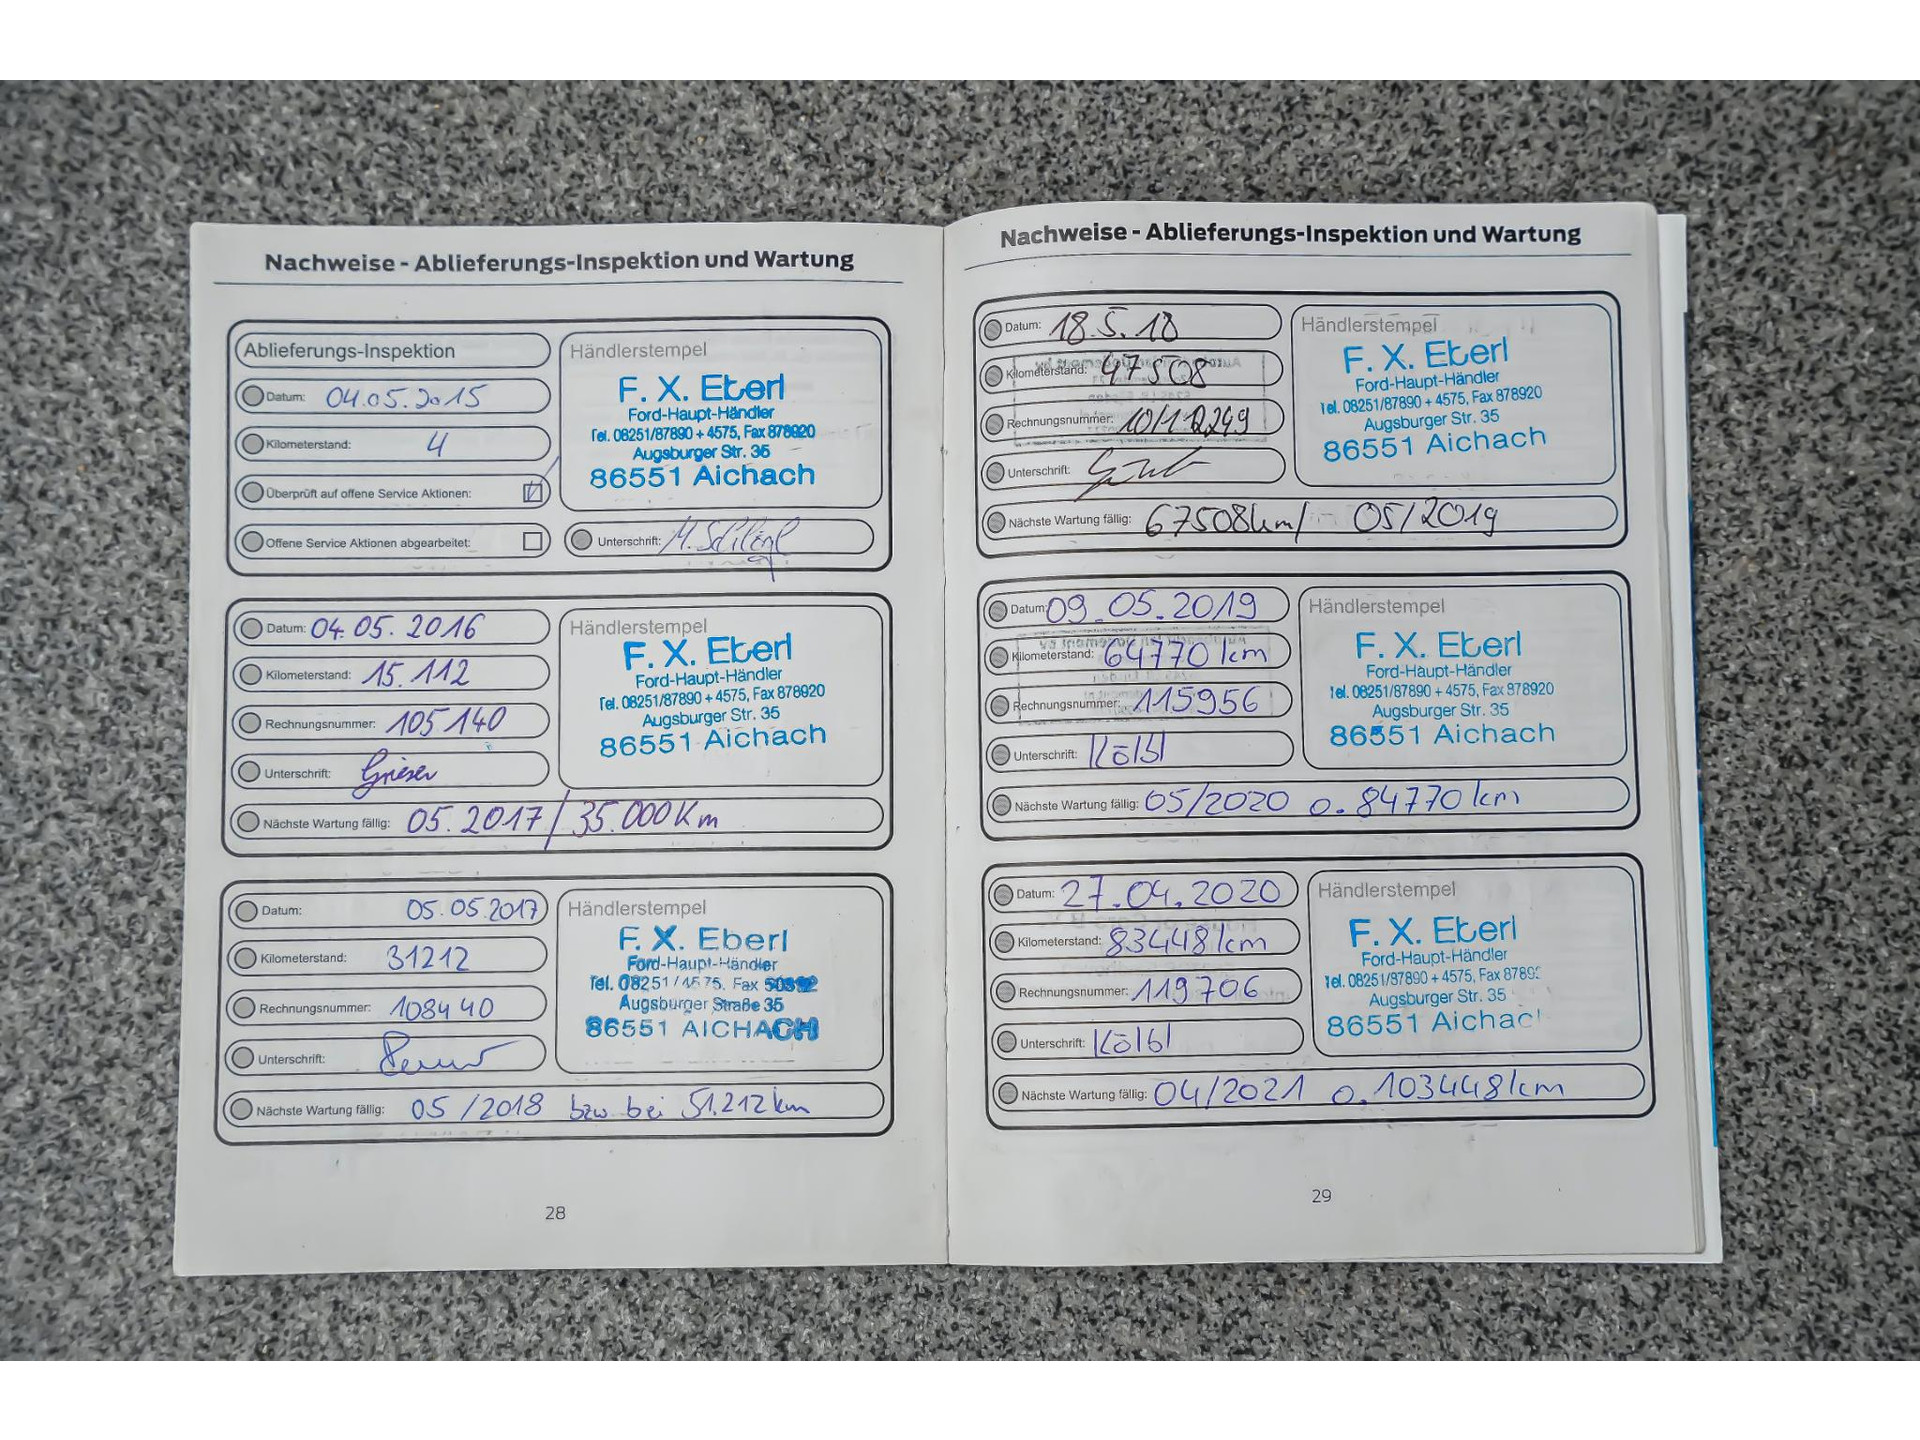 Nachweise - Ablieferungs-Inspektion und Wartung
Ablieferungs-Inspektion
Datum: 04.05.2015
Kilometerstand: 4
Überprüft auf offene Service Aktionen:
Offene Service Aktionen abgearbeitet:
Händlerstempel
F. X. Eberl
Ford-Haupt-Händler
Tel. 08251/87890 + 4575, Fax 878920
Augsburger Str. 35
86551 Aichach
Unterschrift:
Datum: 04.05.2016
Kilometerstand: 15.112
Rechnungsnummer: 105140
Unterschrift: Grieser
Händlerstempel
F. X. Eberl
Ford-Haupt-Händler
Tel. 08251/87890 + 4575, Fax 878920
Augsburger Str. 35
86551 Aichach
Nächste Wartung fällig: 05.2017/35.000Km
Datum: 05.05.2017
Kilometerstand: 31212
Rechnungsnummer: 108440
Unterschrift:
Händlerstempel
F. X. Eberl
Ford-Haupt-Händler
Tel. 08251/4575, Fax
Augsburger Straße 35
86551 AICHACH
Nächste Wartung fällig: 05/2018 bzw bei 51.212km
28
Nachweise - Ablieferungs-Inspektion und Wartung
Datum: 18.5.18
Kilometerstand: 47508
Rechnungsnummer:
Unterschrift:
Händlerstempel
F. X. Eberl
Ford-Haupt-Händler
Tel. 08251/87890 + 4575, Fax 878920
Augsburger Str. 35
86551 Aichach
Nächste Wartung fällig: 67508km/ 05/2019
Datum: 09.05.2019
Kilometerstand: 64770 km
Rechnungsnummer: 115956
Unterschrift: Kölbl
Händlerstempel
F. X. Eberl
Ford-Haupt-Händler
Tel. 08251/87890 + 4575, Fax 878920
Augsburger Str. 35
86551 Aichach
Nächste Wartung fällig: 05/2020 o. 84770 km
Datum: 27.04.2020
Kilometerstand: 83448 km
Rechnungsnummer: 119706
Unterschrift: Kölbl
Händlerstempel
F. X. Eberl
Ford-Haupt-Händler
Tel. 08251/87890 + 4575, Fax 8789
Augsburger Str. 35
86551 Aichac
Nächste Wartung fällig: 04/2021 o. 103448 km
29